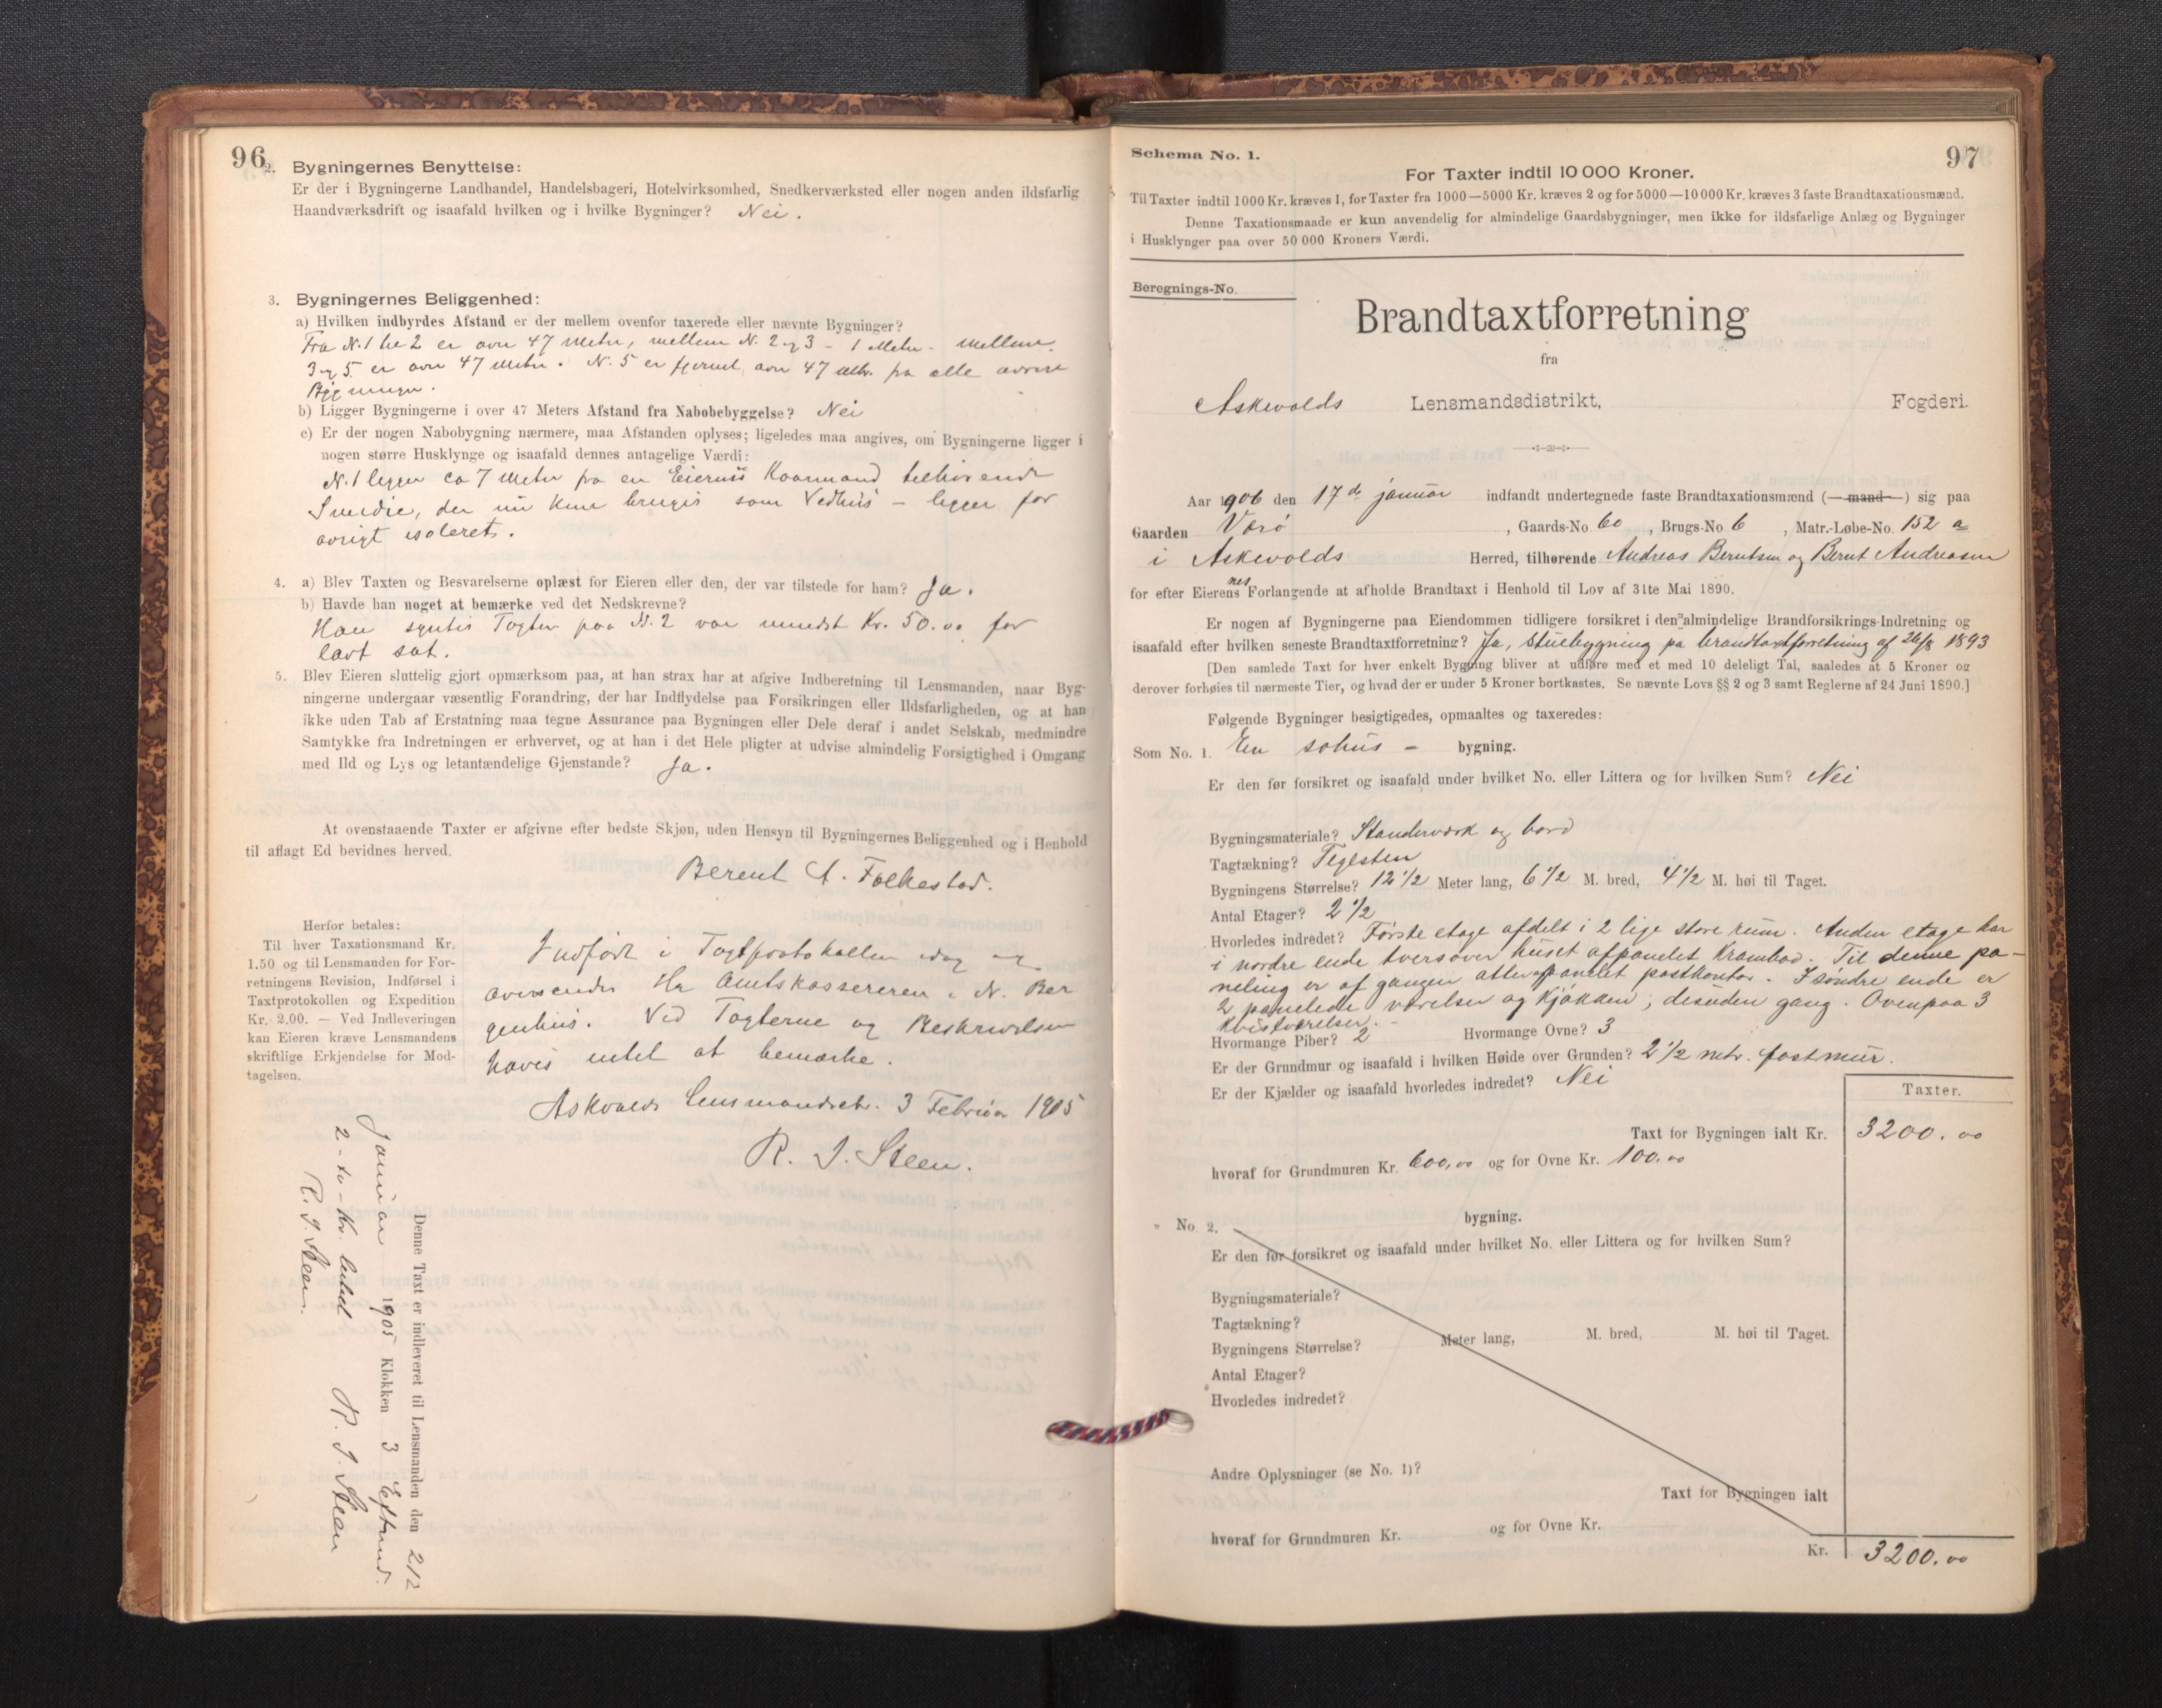 96
2. Bygningernes Benyttelse:
Er der i Bygningerne Landhandel, Handelsbageri, Hotelvirksomhed, Snedkerværksted eller nogen anden ildsfarlig
Haandværksdrift og isaafald hvilken og i hvilke Bygninger? Nei.
3. Bygningernes Beliggenhed:
a) Hvilken indbyrdes Afstand er der mellem ovenfor taxerede eller nævnte Bygninger?
Fra N. 1 til 2 er over 47 Meter, mellem N. 2 og 3 - 1 Meter - mellem
3 og 5 er over 47 Meter. N. 5 er fjernet over 47 Mtr. fra alle øvrige
Bygninger.
b) Ligger Bygningerne i over 47 Meters Afstand fra Nabobebyggelse? Nei
c) Er der nogen Nabobygning nærmere, maa Afstanden oplyses; ligeledes maa angives, om Bygningerne ligger i
nogen større Husklynge og isaafald dennes antagelige Værdi:
N. 1 ligger ca 7 Meter fra en Kaarmand tilhørende
Smedie, der nu kun bruges som Vedhus - ligger for
øvrigt isoleret.
4. a) Blev Taxten og Besvarelserne oplæst for Eieren eller den, der var tilstede for ham? Ja.
b) Havde han noget at bemærke ved det Nedskrevne?
Han syntes Taxten paa N. 2 var mindst Kr. 50.00 for
lavt sat.
5. Blev Eieren sluttelig gjort opmærksom paa, at han strax har at afgive Indberetning til Lensmanden, naar Byg-
ningerne undergaar væsentlig Forandring, der har Indflydelse paa Forsikringen eller Ildsfarligheden, og at han
ikke uden Tab af Erstatning maa tegne Assurance paa Bygningen eller Dele deraf i andet Selskab, medmindre
Samtykke fra Indretningen er erhvervet, og at han i det Hele pligter at udvise almindelig Forsigtighed i Omgang
med Ild og Lys og letantændelige Gjenstande? Ja.
At ovenstaaende Taxter er afgivne efter bedste Skjøn, uden Hensyn til Bygningernes Beliggenhed og i Henhold
til aflagt Ed bevidnes herved.
Berent A. Folkestad.
Herfor betales:
Til hver Taxationsmand Kr.
1.50 og til Lensmanden for For-
retningens Revision, Indførsel i
Taxtprotokollen og Expedition
Kr. 2.00. — Ved Indleveringen
kan Eieren kræve Lensmandens
skriftlige Erkjendelse for Mod-
tagelsen.
Indført i Taxtprotokollen idag og
oversendes Hr Amtskassereren i N. Ber
genhus. Ved Taxterne og Beskrivelsen
haves intet at bemærke.
Askvolds Lensmandsetr. 3 Februar 1905
R. J. Steen.
Denne Taxt er indleveret til Lensmanden den 21/2
Januar 1905 Klokken 3 Eftermd.
2 - to - Kr. betalt R. J. Steen
R. J. Steen.
97
Schema No. 1.
For Taxter indtil 10 000 Kroner.
Til Taxter indtil 1000 Kr. kræves 1, for Taxter fra 1000—5000 Kr. kræves 2 og for 5000—10 000 Kr. kræves 3 faste Brandtaxationsmænd.
Denne Taxationsmaade er kun anvendelig for almindelige Gaardsbygninger, men ikke for ildsfarlige Anlæg og Bygninger
i Husklynger paa over 50 000 Kroners Værdi.
Beregnings-No.
Brandtaxtforretning
fra
Askevolds Lensmandsdistrikt, Fogderi.
Aar 1906 den 17de januar indfandt undertegnede faste Brandtaxationsmænd (—mand—) sig paa
Gaarden Værø, Gaards-No. 60, Brugs-No. 6, Matr.-Løbe-No. 152 a
i Askevolds Herred, tilhørende Andreas Berntsen og Bernt Andreasen
for efter Eierens nes Forlangende at afholde Brandtaxt i Henhold til Lov af 31te Mai 1890.
Er nogen af Bygningerne paa Eiendommen tidligere forsikret i den almindelige Brandforsikrings-Indretning og
isaafald efter hvilken seneste Brandtaxtforretning? Ja, stuebygning på brandtaxtforretning af 26/8 1893
[Den samlede Taxt for hver enkelt Bygning bliver at udføre med et med 10 deleligt Tal, saaledes at 5 Kroner og
derover forhøies til nærmeste Tier, og hvad der er under 5 Kroner bortkastes. Se nævnte Lovs §§ 2 og 3 samt Reglerne af 24 Juni 1890.]
Følgende Bygninger besigtigedes, opmaaltes og taxeredes:
Som No. 1. En søhus - bygning.
Er den før forsikret og isaafald under hvilket No. eller Littera og for hvilken Sum? Nei
Bygningsmateriale? Standerværk og bord
Tagtækning? Teglsten
Bygningens Størrelse? 12 1/2 Meter lang, 6 1/2 M. bred, 4 1/2 M. høi til Taget.
Antal Etager? 2 1/2
Hvorledes indredet? Første etage afdelt i 2 lige store rum. Anden etage har
i nordre ende tversover huset afpanelet Krambod. Til denne pa-
neling er af gangen atter afpanelet postkontor. I søndre ende er
2 panelede værelser og Kjøkken; desuden gang. Ovenpaa 3
Kvistværelser.
Hvormange Piber? 2 Hvormange Ovne? 3
Er der Grundmur og isaafald i hvilken Høide over Grunden? 2 1/2 mtr. fastmur.
Er der Kjælder og isaafald hvorledes indredet? Nei
Taxter.
Taxt for Bygningen ialt Kr. 3200.00
hvoraf for Grundmuren Kr. 600,00 og for Ovne Kr. 100.00
" No. 2. bygning.
Er den før forsikret og isaafald under hvilket No. eller Littera og for hvilken Sum?
Bygningsmateriale?
Tagtækning?
Bygningens Størrelse? Meter lang, M. bred, M. høi til Taget.
Antal Etager?
Hvorledes indredet?
Andre Oplysninger (se No. 1)?
Taxt for Bygningen ialt
hvoraf for Grundmuren Kr. og for Ovne Kr.
Kr. 3200.00